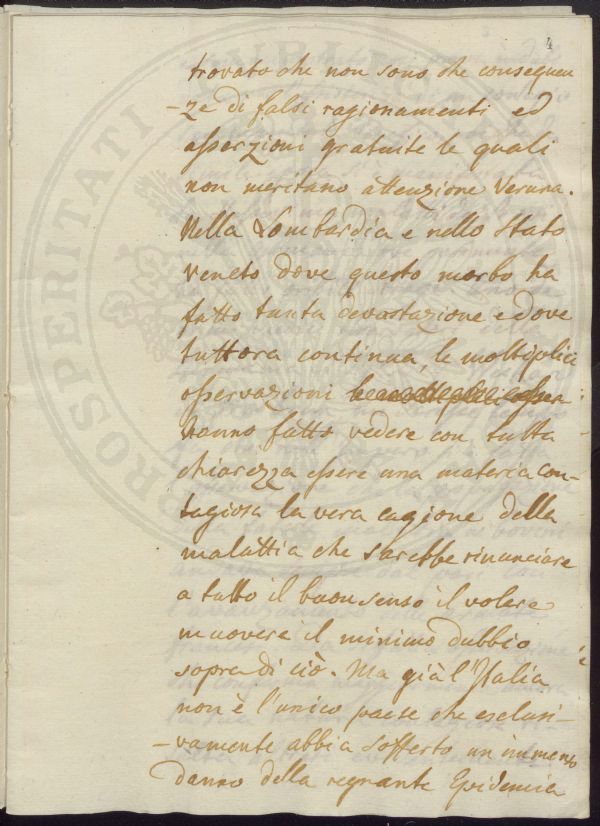 4
trovato che non sono che conseguen
-ze di falsi ragionamenti ed
asserzioni gratuite le quali
non meritano attenzione veruna.
Nella Lombardia e nello Stato
Veneto dove questo morbo ha
fatto tanta devastazione e dove
tuttora continua, le moltiplici
osservazioni
hanno fatto vedere con tutta
chiarezza essere una materia con-
tagiosa la vera cagione della
malattia che sarebbe rinunciare
a tutto il buon senso il volere
muovere il minimo dubbio
sopra di ciò. Ma già l'Italia
non è l'unico paese che esclusi-
-vamente abbia sofferto un immenso
danno della regnante Epidemia
PROSPERITATI PUBLIC